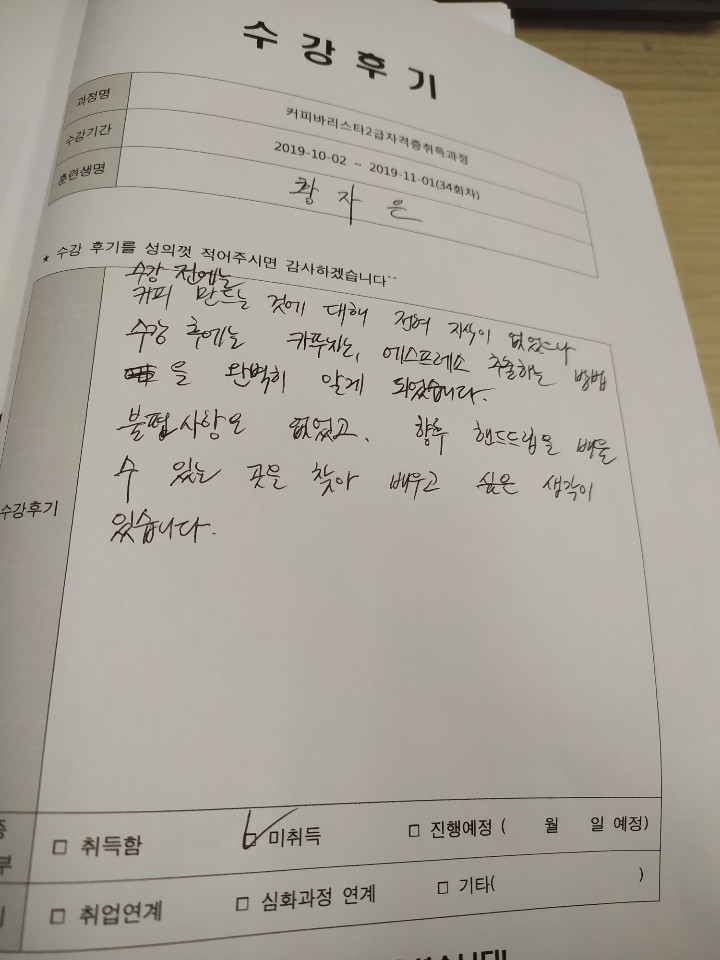 수강후기
과정명 커피바리스타2급자격증취득과정
수강기간 2019-10-02 ~ 2019-11-01(34회차)
훈련생명 황자은
* 수강 후기를 성의껏 적어주시면 감사하겠습니다^^
수강 전에는
커피 만드는 것에 대해 전혀 지식이 없었으나
수강 후에는 카푸치노, 에스프레소 추출하는 방법
을 완벽히 알게 되었습니다.
불평사항도 없었고, 향후 핸드드립을 배울
수 있는 곳을 찾아 배우고 싶은 생각이
수강후기
있습니다.
□ 취득함 □ 미취득 □ 진행예정 ( 월 일 예정)
부
□ 취업연계 □ 심화과정 연계 □ 기타( )